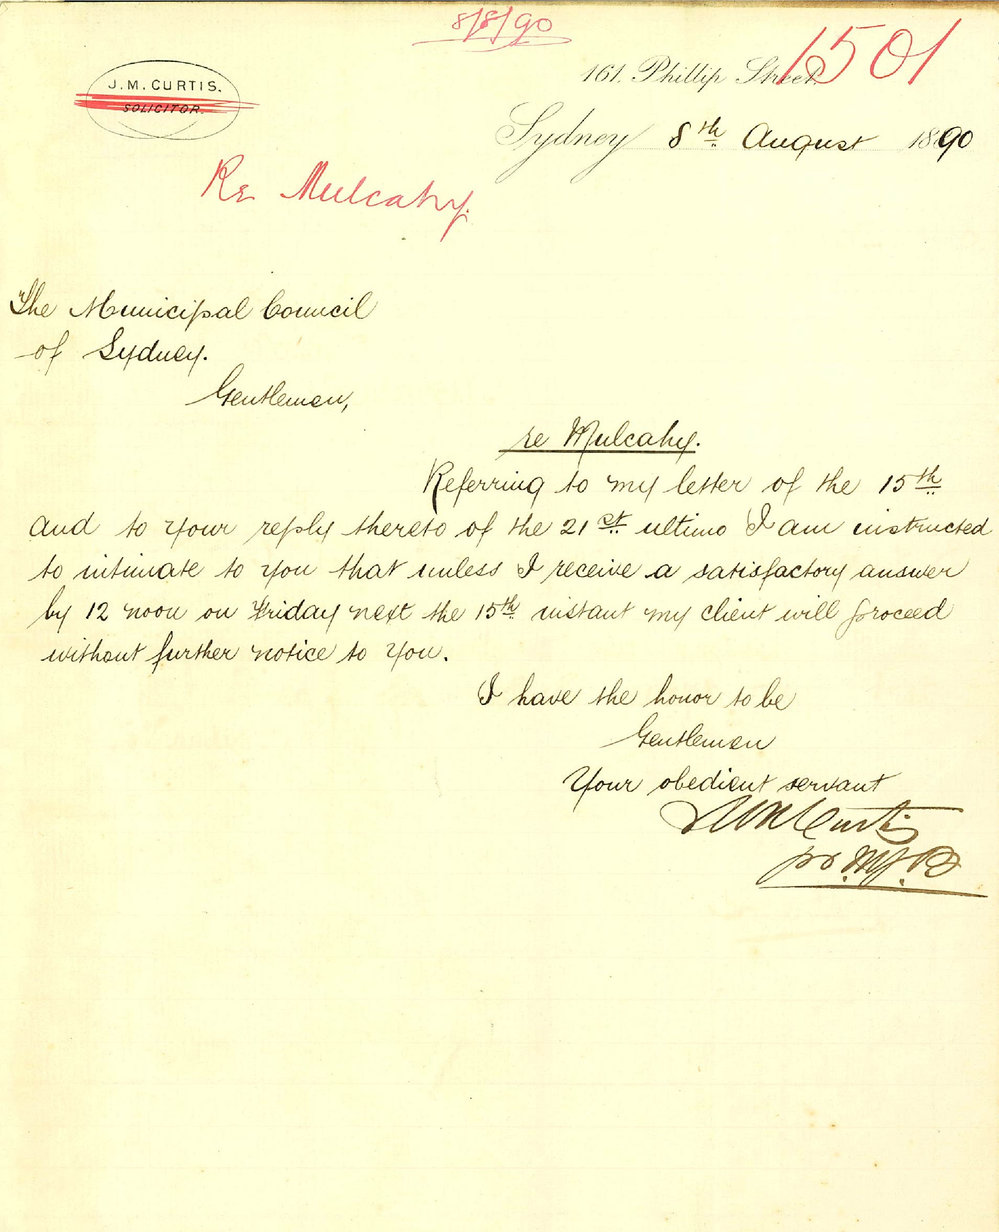 8/8/90
1501
J. M. CURTIS.
SOLICITOR.
161. Phillip Street.
Sydney 8th August 1890
Re Mulcahy.
The Municipal Council
of Sydney.
Gentlemen,
re Mulcahy.
Referring to my letter of the 15th
and to your reply thereto of the 21st ultimo I am instructed
to intimate to you that unless I receive a satisfactory answer
by 12 noon on Friday next the 15th instant my client will proceed
without further notice to you.
I have the honor to be
Gentlemen
Your obedient servant
J M Curtis